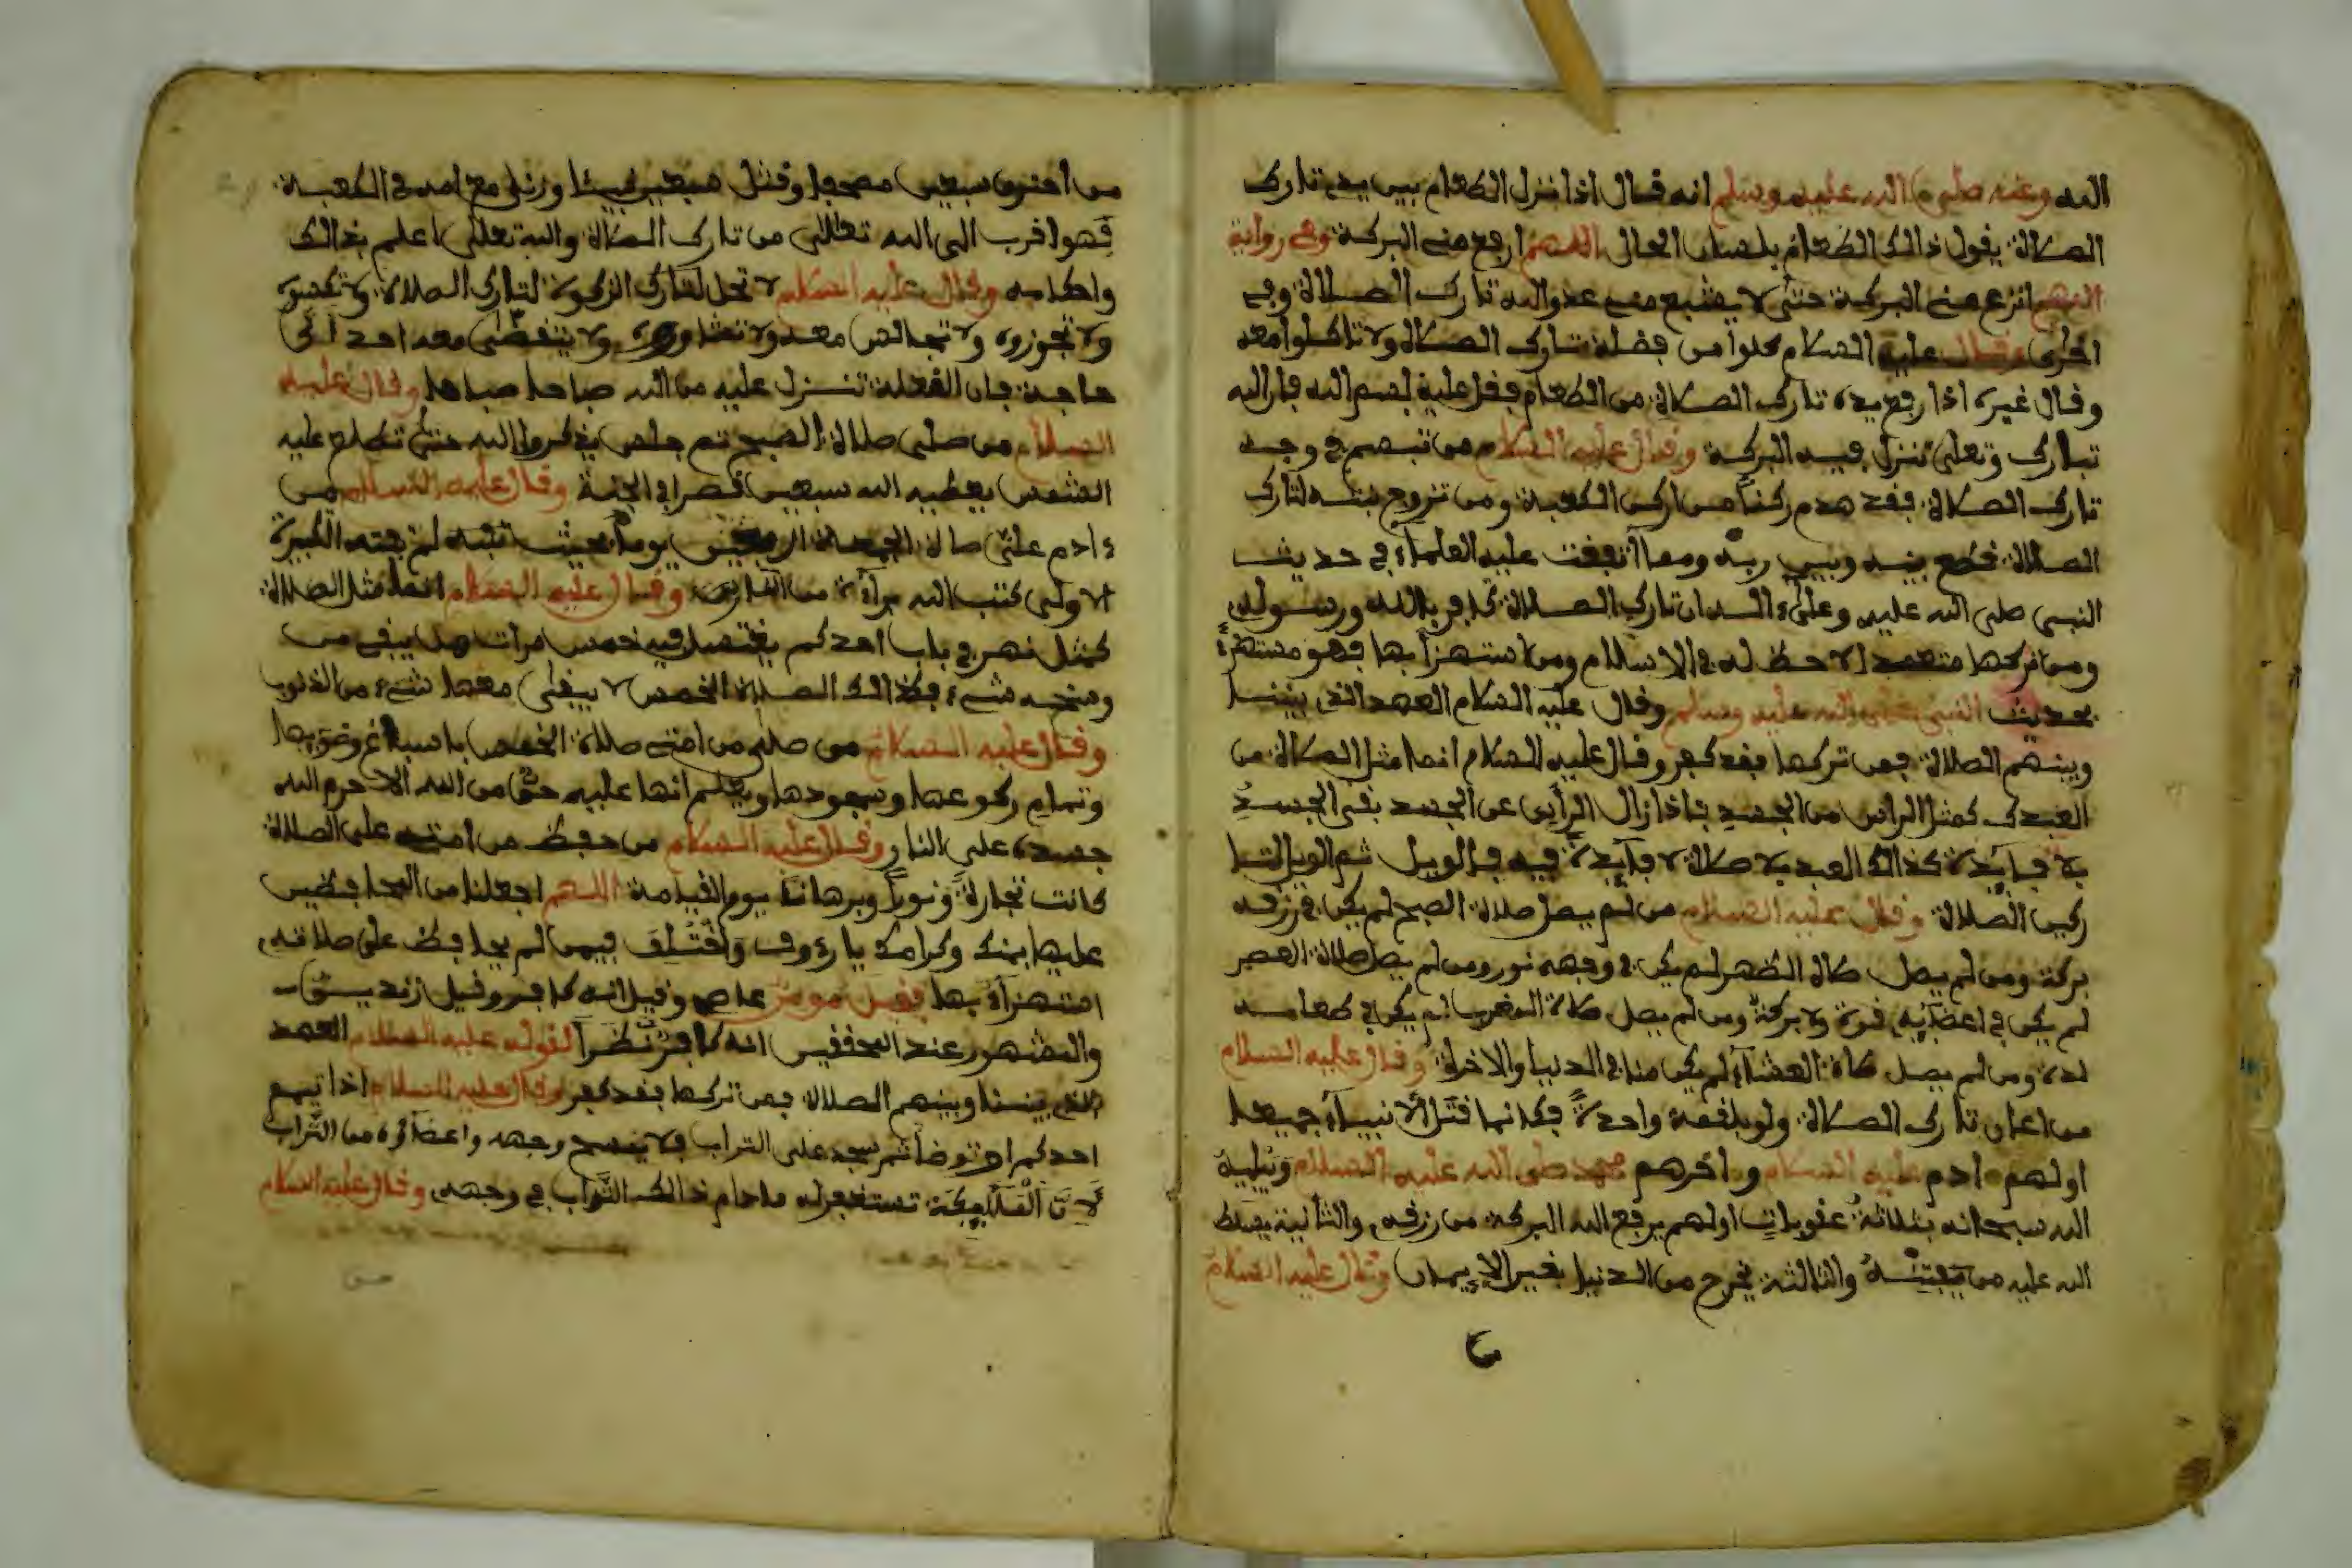 الله وعنه صلى الله عليه وسلم انه قال اذا نزل الطعام بين يدي تارك
الصلاة يقول ذالك الطعام بلسان الحال اللهم ارفع منى البركة وفي رواية
اللهم انزع منى البركة حتى لا يشبع منى عدو الله تارك الصلاة وفي
اخرى وقال عليه السلام كلوا من فضلة تارك الصلاة ولا تاكلوا معه
وقال غيره اذا رفع يده تارك الصلاة من الطعام فقل عليه بسم الله فان الله
تبارك وتعلى تنزل فيه البركة وقال عليه السلام من تبسم في وجه
تارك الصلاة فقد هدم ركنا من اركن الكعبة ومن تزوج بنته لتارك
الصلاة قطع بينه وبين ربه ومما اتفقت عليه العلماء في حديث
النبي صلى الله عليه وعلى ءاله ان تارك الصلاة كافر بالله ورسوله
ومن تركها متعمدا لا حظ له في الاسلام ومن استهزأ بها فهو مستهزئ
بحديث النبي صلى الله عليه وسلم وقال عليه السلام العهد الذي بيننا
وبينهم الصلاة فمن تركها فقد كفر وقال عليه السلام انما مثل الصلاة من
العبد كمثل الراس من الجسد فاذا زال الرأس عن الجسد بقى الجسد
بلا فايدة كذالك العبد بلا صلاة لا فايدة فيه فالويل ثم الويل لتا
ركين الصلاة وقال عليه السلام من لم يصل صلاة الصبح لم يكن في رزقه
بركة ومن لم يصل صلاة الظهر لم يكن في وجهه نور ومن لم يصل صلاة العصر
لم يكن في اعضآيه قوة ولا بركة ومن لم يصل صلاة المغرب لم يكن في طعامه
لذة ومن لم يصل صلاة العشاء لم يكن منا في الدنيا والاخرة وقال عليه السلام
من اعان تارك الصلاة ولو بلقمة واحدة فكانما قتل الانبيآء جميعا
اولهم ءادم عليه السلام واخرهم محمد صلى الله عليه السلام ويبليه
الله سبحانه بثلاثة عقوبات اولهم يرفع الله البركة من رزقه والثانية يسلط
الله عليه من يفتنه والثالثة يخرج من الدنيا بغير الإيمان وقال عليه السلام
من احترق سبعين مصحفا وقتل سبعين نبيئا وزنى مع امه في الكعبة
فهو اقرب الى الله تعالى من تارك الصلاة والله تعلى اعلم بذالك
واحكامه وقال عليه السلام لا تحل لتارك الزكوة لتارك الصلاة ولا تكسوه
ولا تجوزوه ولا تجالس معه ولا تشاوروه ولا يتقضى معه احد الى
حاجة فان اللعنة تنزل عليه من الله صاحا صباحا وقال عليه
السلام من صلى صلاة الصبح ثم جلس يذكروا الله حتى تطلع عليه
الشمس يعطيه الله سبعين قصرا في الجنة وقال عليه السلام من
دادم على صلاة الجمعة اربعين يوما بحيث لم تفته التكبيرة
الاولى كتب الله برآءة من النار وقال عليه السلام انما مثل الصلاة
كمثل نهر في باب احدكم يغتسل فيه خمس مرات هل يبقى من
وسخه شيء فكذالك الصلاة الخمس لا يبقى معها شيء من الذنوب
وقال عليه السلام من صلى من امتي صلاة الخمس باسباغ وضوءها
وتمام ركوعها وسجودها ويعلم انها عليه حق من الله الا حرم الله
جسده على النار وقال عليه السلام من حفظ من امتي على الصلاة
كانت تجارة ونورا وبرهانا يوم القيامة اللهم اجعلنا من المحافظين
عليها بمنك وكرامك يا رءوف واختلف فيمن لم يحافظ على صلاته
استهزاء بها فقيل مومن عاص وقيل انه كافر وقيل زنديق
والمشهور عند المحققين انه كافر نظرا لقوله عليه السلام العهد
الذي بيننا وبينهم الصلاة فمن تركها فقد كفر وقال عليه السلام اذا تيمم
احدكم او توضأ ثم سجد على التراب فلا يمسح وجهه واعضآءه من التراب
لان الملئكة تستغفر له مادام ذالك التراب في وجهه وقال عليه السلام
من